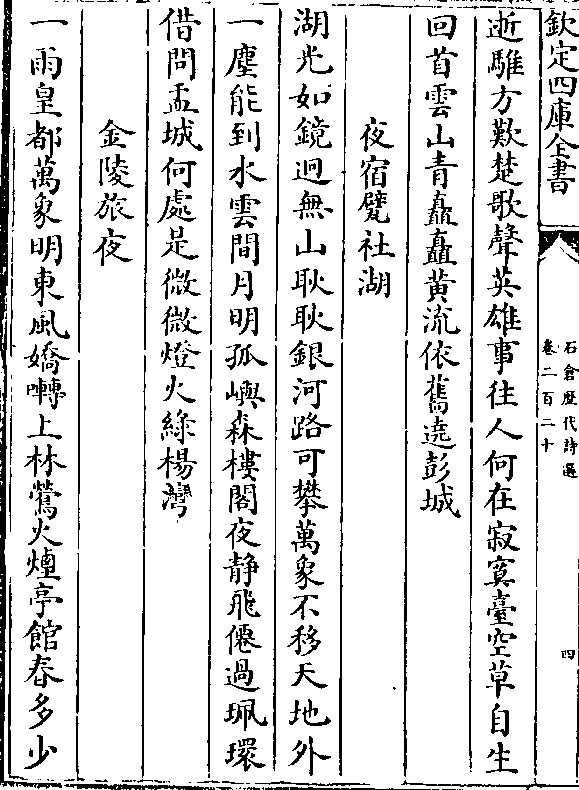 欽定四庫全書
石倉歷代詩選
卷二百二十
四
逝騅方歎楚歌聲英雄事往人何在寂寞臺空草自生
回首雲山青矗矗黃流依舊遶彭城
夜宿甓社湖
湖光如鏡迥無山耿耿銀河路可攀萬象不移天地外
一塵能到水雲間月明孤嶼森樓閣夜静飛僊過珮環
借問盂城何處是微微燈火綠楊灣
金陵旅夜
一雨皇都萬象明東風嬌囀上林鶯火煙亭館春多少